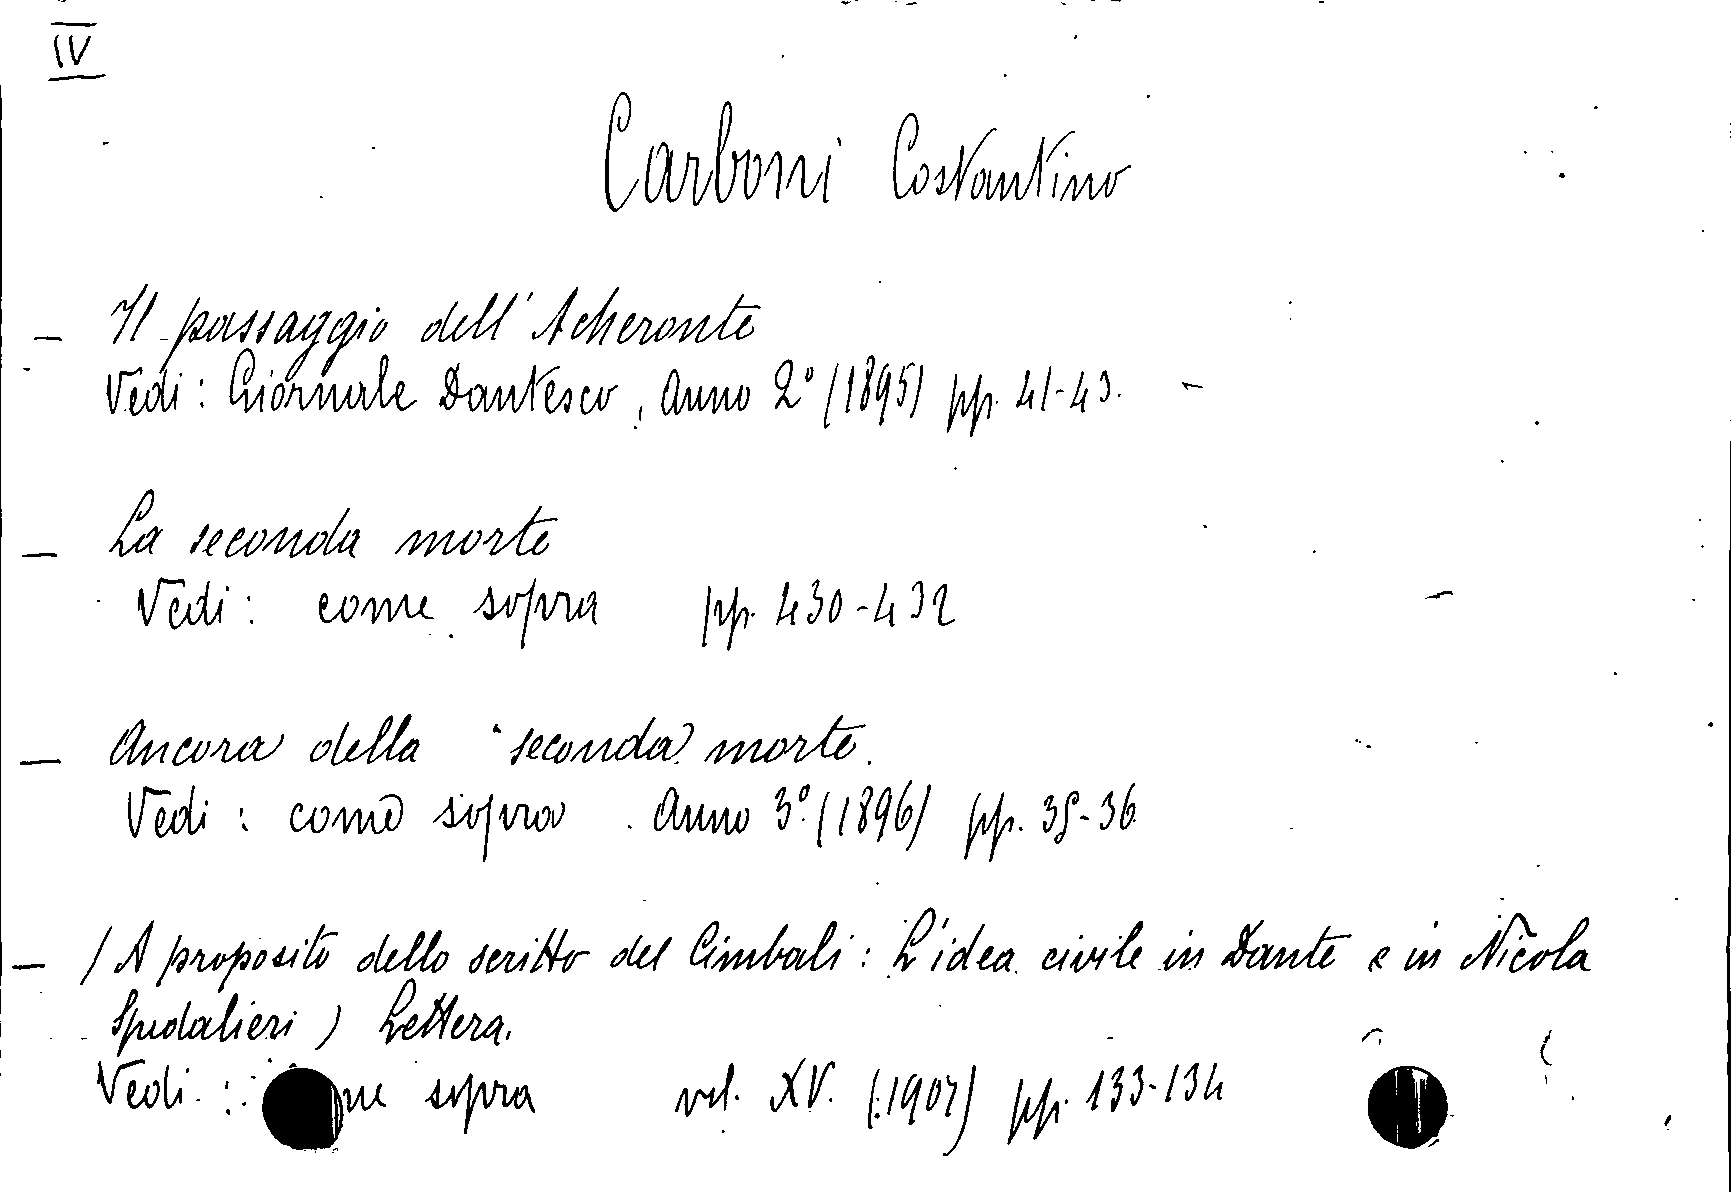 IV
Carboni Costantino
— Il passaggio dell'Acheronte
Vedi: Giornale Dantesco, Anno 2° (1895) pp. 41-43.
— La seconda morte
Vedi: come sopra pp. 430-432
— Ancora della seconda morte.
Vedi: come sopra. Anno 3° (1896) pp. 35-36
— (A proposito dello scritto del Cimbali: L'idea civile in Dante e in Nicola
Spedalieri) Lettera.
Vedi: sopra vol. XV. (1907) pp. 133-134